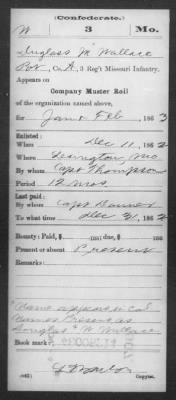 (Confederate.)
W 3 Mo.
Duglass M Wallace
Pvt, Co. A, 3 Reg't Missouri Infantry.
Appears on
Company Muster Roll
of the organization named above,
for Jan & Feb, 1863
Enlisted:
When Dec 11, 1862
Where Lexington, Mo
By whom Capt Thompson
Period 12 mos.
Last paid:
By whom Capt
To what time Dec 31, 1862
Bounty: Paid, $ 100; due, $ 100
Present or absent Present
Remarks:
"Name appears in col
Names Present as
Douglas W Wallace
Book mark:
Copyist.